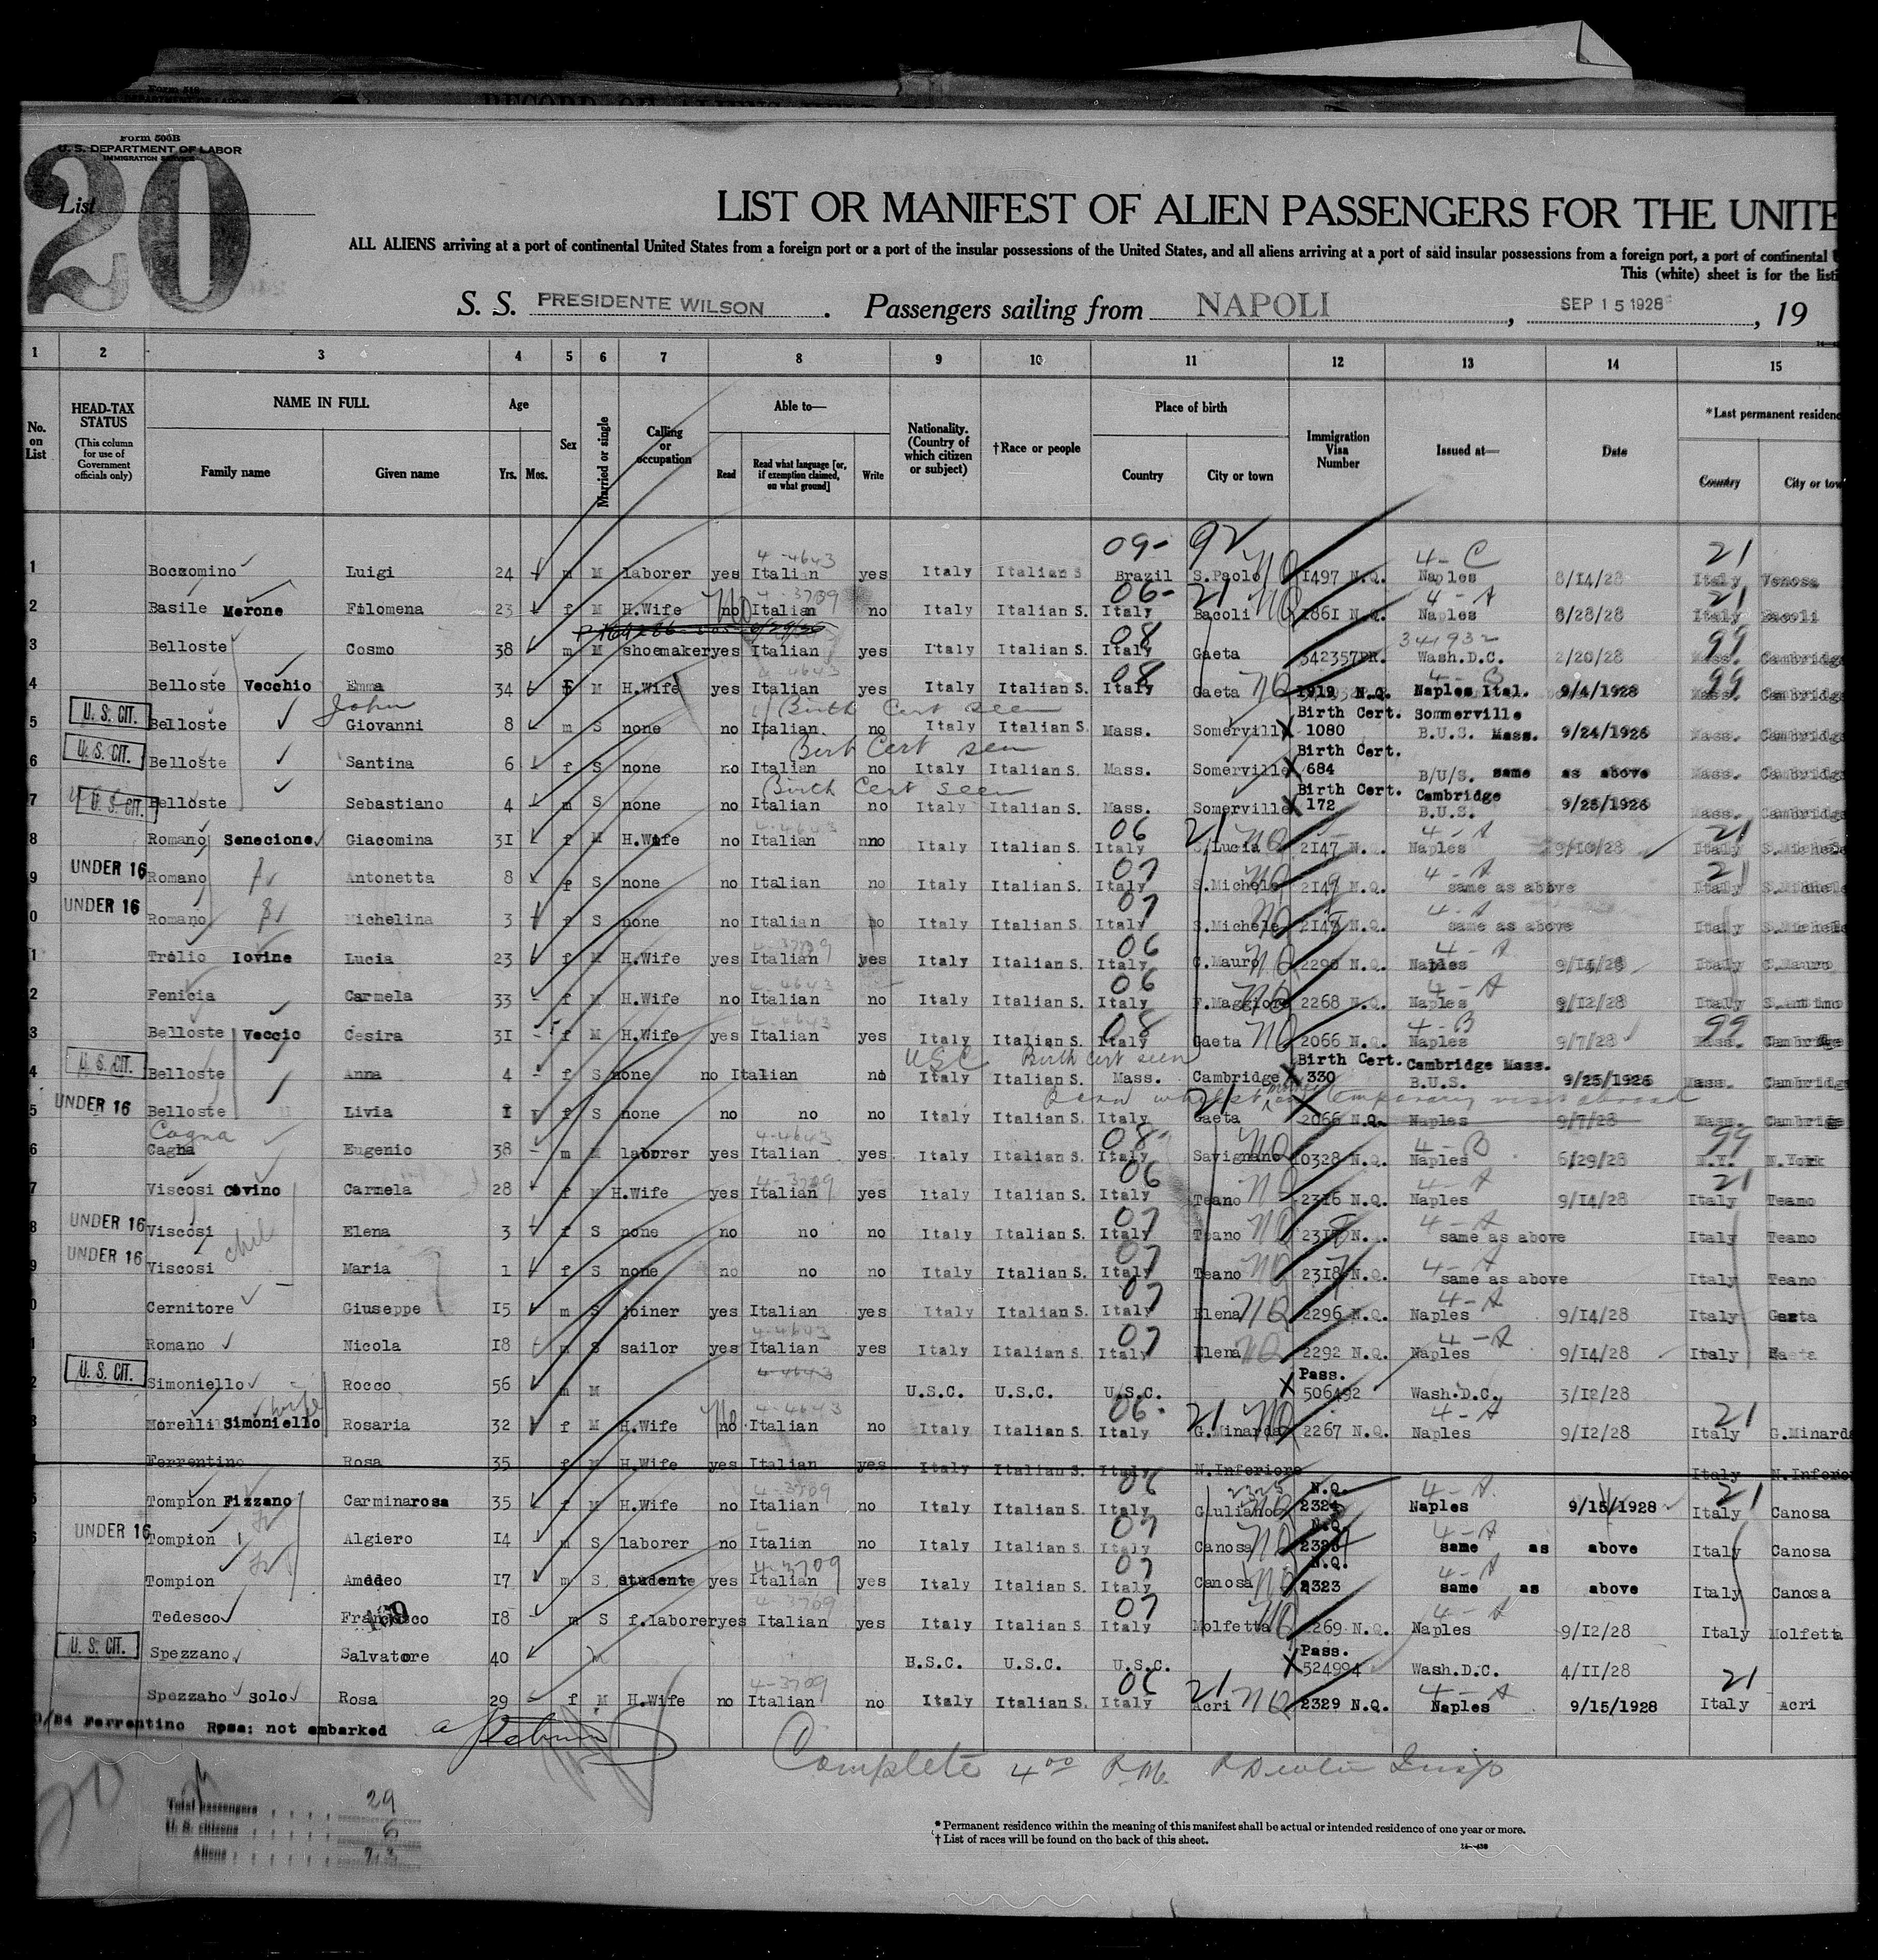 Form 500B
U. S. DEPARTMENT OF LABOR
IMMIGRATION SERVICE
20
List
LIST OR MANIFEST OF ALIEN PASSENGERS FOR THE UNITE
ALL ALIENS arriving at a port of continental United States from a foreign port or a port of the insular possessions of the United States, and all aliens arriving at a port of said insular possessions from a foreign port, a port of continental
This (white) sheet is for the listi
S. S. PRESIDENTE WILSON. Passengers sailing from NAPOLI, SEP 15 1928, 19
1 2 3 4 5 6 7 8 9 10 11 12 13 14 15
No. on List
HEAD-TAX STATUS (This column for use of Government officials only)
NAME IN FULL Family name Given name
Age Yrs. Mos.
Sex
Married or single
Calling or occupation
Able to— Read Read what language [or, if exemption claimed, on what ground] Write
Nationality. (Country of which citizen or subject)
†Race or people
Place of birth Country City or town
Immigration Visa Number
Issued at—
Date
*Last permanent residenc Country City or tow
09- 92 4-4643 4-C 21
1 Boccomino Luigi 24 m M laborer yes Italian yes Italy Italian S Brazil S.Paolo NQ 1497 N.Q. Naples 8/14/28 Italy Venosa
4-3709 06- 21 4-A 21
2 Basile Merone Filomena 23 f M H.Wife no Italian no Italy Italian S. Italy Bacoli NQ 1861 N.Q. Naples 8/28/28 Italy Bacoli
08 341932 99
3 Belloste Cosmo 38 m M shoemaker yes Italian yes Italy Italian S. Italy Gaeta 342357PR. Wash.D.C. 2/20/28 Mass. Cambridge
4-4643 08 4-B 99
4 Belloste Vecchio Emma 34 f M H.Wife yes Italian yes Italy Italian S. Italy Gaeta NQ 1919 N.Q. Naples Ital. 9/4/1928 Mass. Cambridge
U. S. CIT. John Birth Cert seen Birth Cert. Sommerville
5 Belloste Giovanni 8 m S none no Italian no Italy Italian S. Mass. Somerville X 1080 B.U.S. Mass. 9/24/1926 Mass. Cambridge
U. S. CIT. Birth Cert seen Birth Cert.
6 Belloste Santina 6 f S none no Italian no Italy Italian S. Mass. Somerville X 684 B/U/S. same as above Mass. Cambridge
U. S. CIT. Birth Cert seen Birth Cert. Cambridge
7 Belloste Sebastiano 4 m S none no Italian no Italy Italian S. Mass. Somerville X 172 B.U.S. 9/25/1926 Mass. Cambridge
4-4643 06 21 4-A 21
8 Romano Senecione Giacomina 31 f M H.Wife no Italian no Italy Italian S. Italy S.Lucia NQ 2147 N.Q. Naples 9/10/28 Italy S.Michele
UNDER 16 07 4-A 21
9 Romano Antonetta 8 f S none no Italian no Italy Italian S. Italy S.Michele NQ 2149 N.Q. same as above Italy S.Michele
UNDER 16 07 4-A
0 Romano Michelina 3 f S none no Italian no Italy Italian S. Italy S.Michele NQ 2148 N.Q. same as above Italy S.Michele
4-3709 06 4-A
1 Trolio Iovine Lucia 23 f M H.Wife yes Italian yes Italy Italian S. Italy C.Mauro NQ 2296 N.Q. Naples 9/14/28 Italy C.Mauro
4-4643 06 4-A
2 Fenicia Carmela 33 f M H.Wife no Italian no Italy Italian S. Italy F.Maggiore NQ 2268 N.Q. Naples 9/12/28 Italy
4-4643 08 4-B 99
3 Belloste Veccio Cesira 31 f M H.Wife yes Italian yes Italy Italian S. Italy Gaeta NQ 2066 N.Q. Naples 9/7/28 Mass. Cambridge
U. S. CIT. USC Birth Cert seen Birth Cert. Cambridge Mass.
4 Belloste Anna 4 f S none no Italian no Italy Italian S. Mass. Cambridge X 330 B.U.S. 9/25/1926 Mass. Cambridge
UNDER 16 Born whilst mother on temporary visit abroad 21
5 Belloste Livia 1 f S none no no no Italy Italian S. Italy Gaeta 2066 N.Q. Naples 9/7/28 Mass. Cambridge
Cagna 4-4643 08 4-B 99
6 Cagna Eugenio 38 m M laborer yes Italian yes Italy Italian S. Italy Savignano NQ 10328 N.Q. Naples 6/29/28 N.Y. N.York
4-3709 06 4-A 21
7 Viscosi Covino Carmela 28 f M H.Wife yes Italian yes Italy Italian S. Italy Teano NQ 2316 N.Q. Naples 9/14/28 Italy Teano
UNDER 16 07 4-A
8 Viscosi Elena 3 f S none no no no Italy Italian S. Italy Teano NQ N.Q. same as above Italy Teano
UNDER 16 07 4-A
9 Viscosi Maria 1 f S none no no no Italy Italian S. Italy Teano NQ 2318 N.Q. same as above Italy Teano
07 4-A
0 Cernitore Giuseppe 15 m S joiner yes Italian yes Italy Italian S. Italy Elena NQ 2296 N.Q. Naples 9/14/28 Italy Gaeta
4-4643 07 4-A
1 Romano Nicola 18 m S sailor yes Italian yes Italy Italian S. Italy Elena NQ 2292 N.Q. Naples 9/14/28 Italy Gaeta
U. S. CIT. 4-4643 Pass.
2 Simoniello Rocco 56 m M U.S.C. U.S.C. U.S.C. X 506492 Wash.D.C. 3/12/28
wife 4-4643 06- 21 4-A 21
3 Morelli Simoniello Rosaria 32 f M H.Wife no Italian no Italy Italian S. Italy G.Minarda NQ 2267 N.Q. Naples 9/12/28 Italy G.Minarda
Ferrentino Rosa 35 f M H.Wife yes Italian yes Italy Italian S. Italy N.Inferiore Italy N.Inferio
4-3709 06 2325 N.Q. 4-A 21
5 Tompion Fizzano Carminarosa 35 f M H.Wife no Italian no Italy Italian S. Italy Giuliano NQ 2324 Naples 9/15/1928 Italy Canosa
UNDER 16 07 N.Q. 4-A
6 Tompion Algiero 14 m S laborer no Italian no Italy Italian S. Italy Canosa NQ same as above Italy Canosa
4-3709 07 N.Q. 4-A
Tompion Amedeo 17 m S studente yes Italian yes Italy Italian S. Italy Canosa NQ 2323 same as above Italy Canosa
4-3709 07 4-A
Tedesco Francesco 18 m S f.laborer yes Italian yes Italy Italian S. Italy Molfetta NQ 2269 N.Q. Naples 9/12/28 Italy Molfetta
U. S. CIT. Pass.
Spezzano Salvatore 40 M U.S.C. U.S.C. X 524994 Wash.D.C. 4/11/28
4-3709 06 21 4-A 21
Spezzano Solo Rosa 29 f M H.Wife no Italian no Italy Italian S. Italy Acri NQ 2329 N.Q. Naples 9/15/1928 Italy Acri
Ferrentino Rosa: not embarked
Complete 4 00 P.M. Insp
Total passengers 29
U. S. citizens 6
Aliens 23
* Permanent residence within the meaning of this manifest shall be actual or intended residence of one year or more.
† List of races will be found on the back of this sheet.